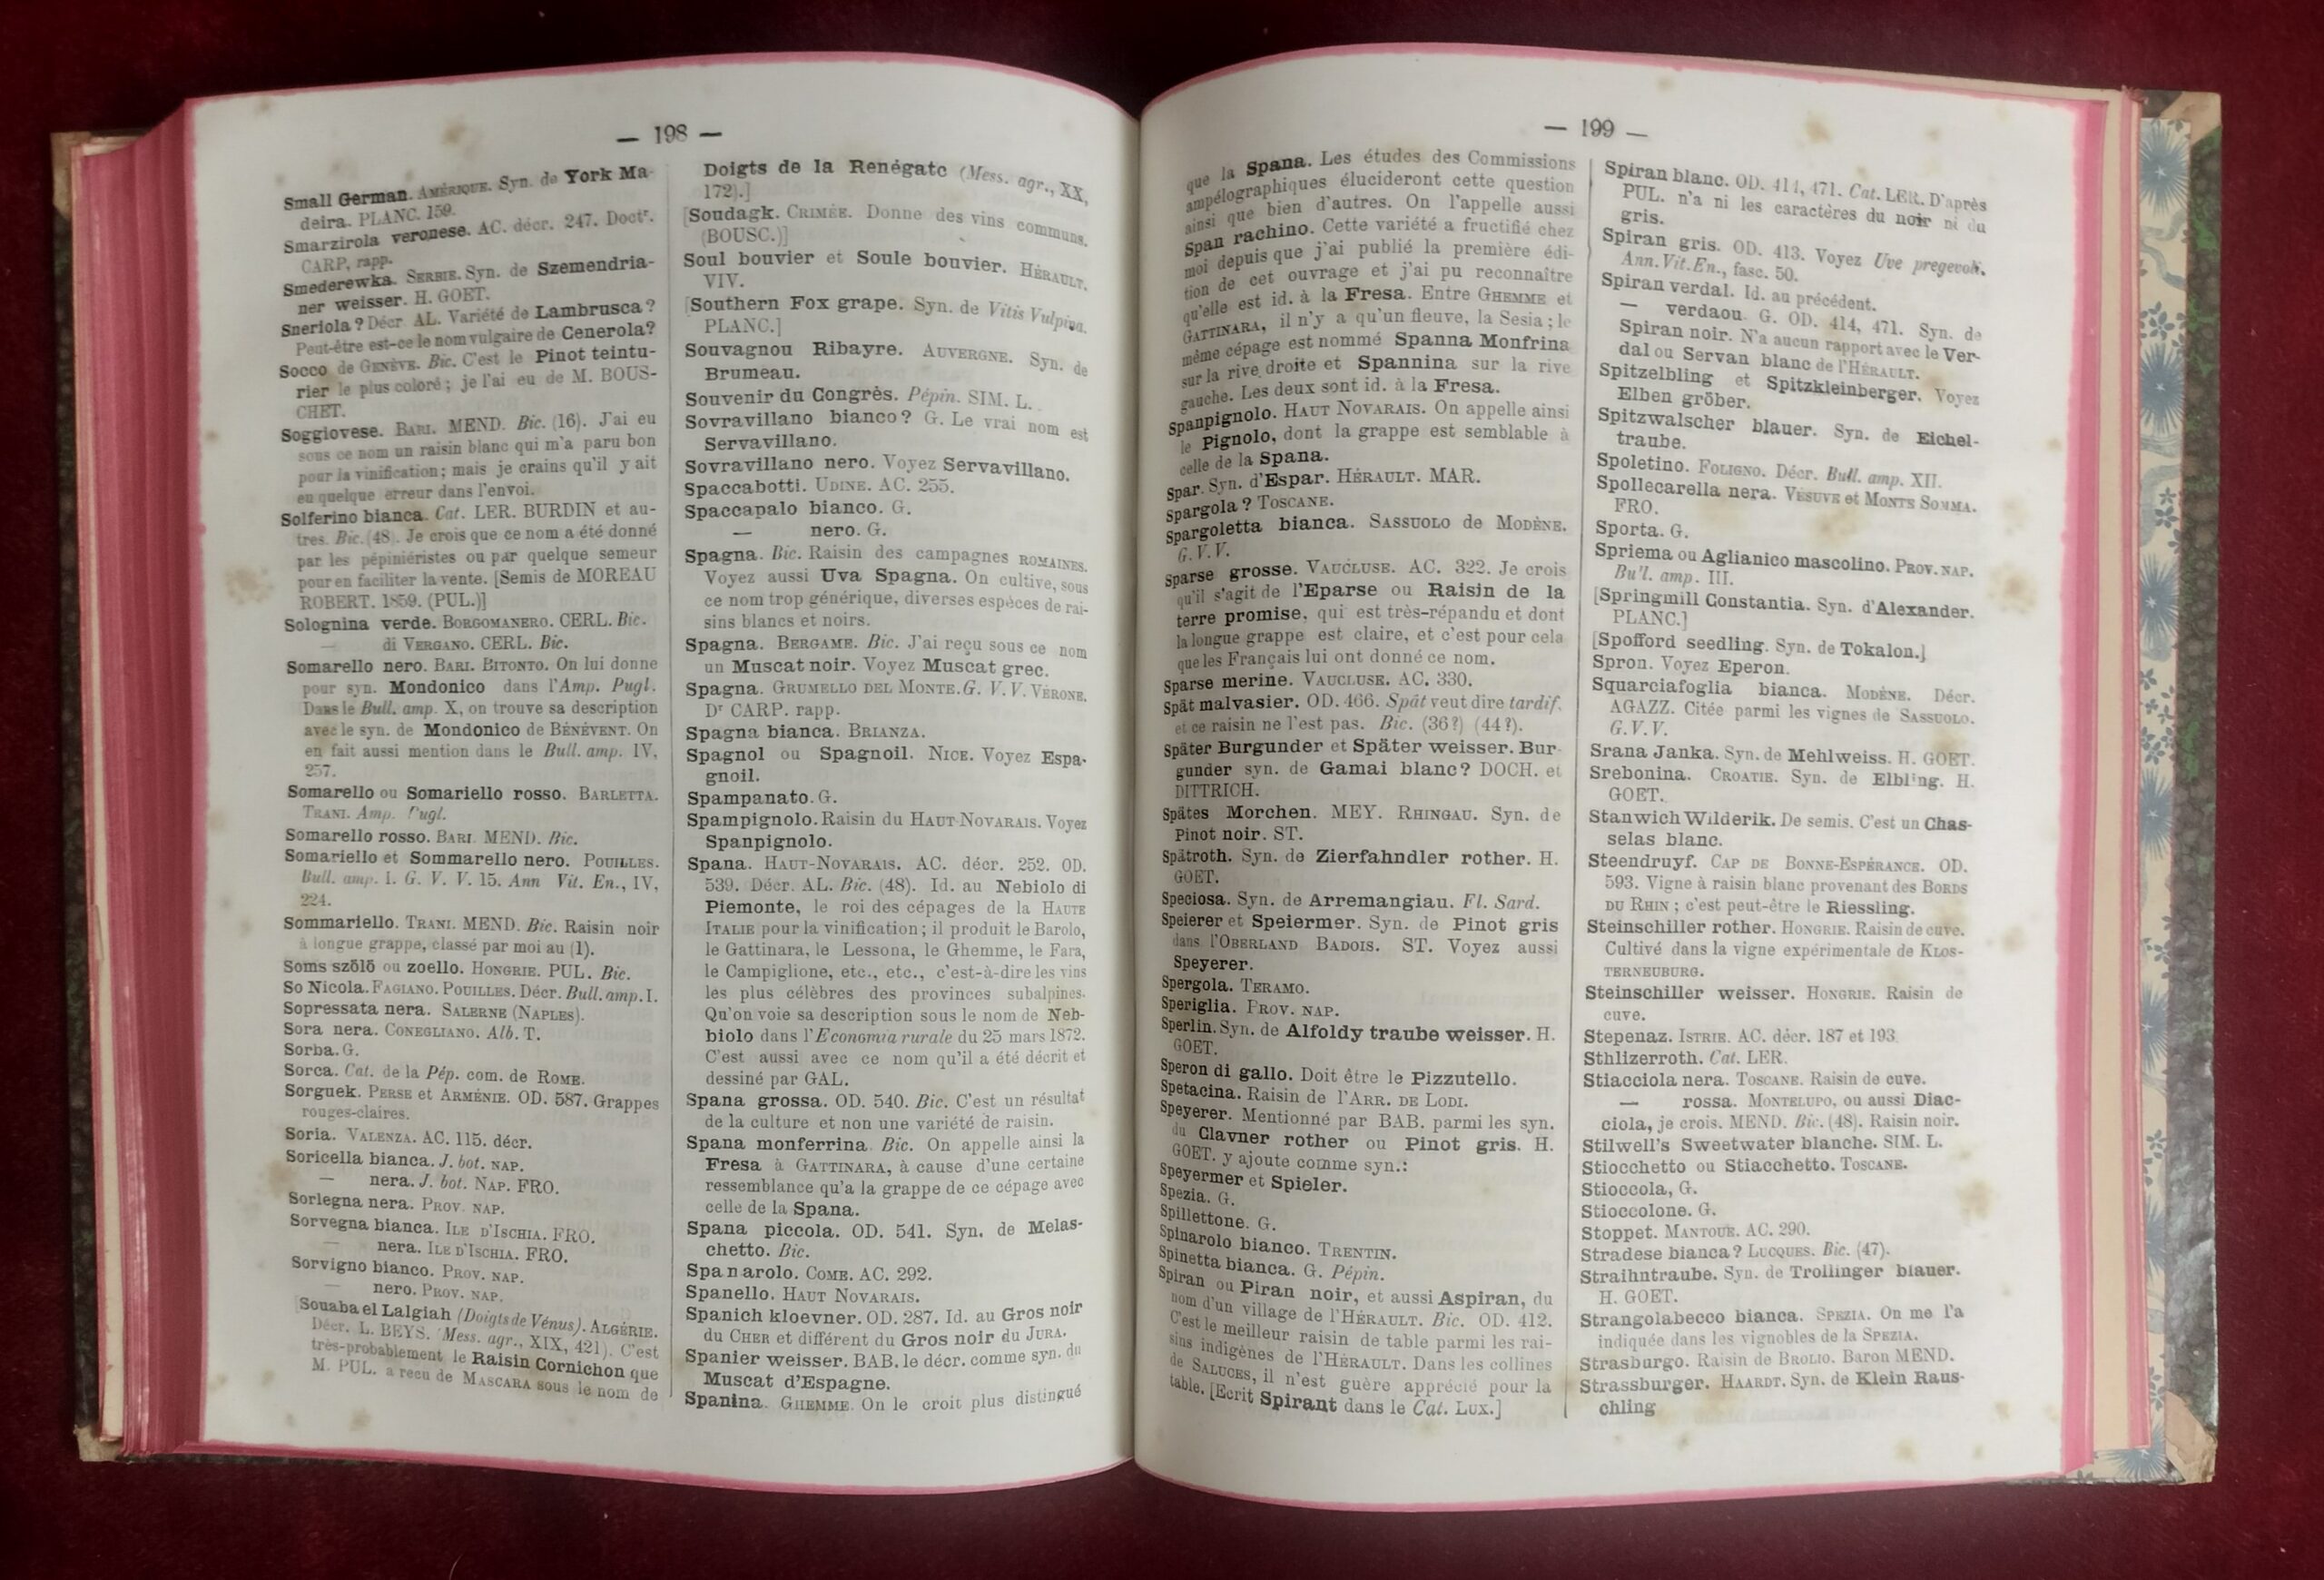 — 198 —
Small German. AMÉRIQUE. Syn. de York Ma-
deira. PLANC. 159.
Smarzirola veronese. AC. décr. 247. Doctr.
CARP, rapp.
Smederewka. SERBIE. Syn. de Szemendria-
ner weisser. H. GOET.
Sneriola? Décr AL. Variété de Lambrusca?
Peut-être est-ce le nom vulgaire de Cenerola?
Socco de GENÈVE. Bic. C'est le Pinot teintu-
rier le plus coloré; je l'ai eu de M. BOUS-
CHET.
Soggiovese. BARI. MEND. Bic. (16). J'ai eu
sous ce nom un raisin blanc qui m'a paru bon
pour la vinification; mais je crains qu'il y ait
eu quelque erreur dans l'envoi.
Solferino bianca. Cat. LER. BURDIN et au-
tres. Bic. (48). Je crois que ce nom a été donné
par les pépiniéristes ou par quelque semeur
pour en faciliter la vente. [Semis de MOREAU
ROBERT. 1859. (PUL.)]
Solognina verde. BORGOMANERO. CERL. Bic.
— di VERGANO. CERL. Bic.
Somarello nero. BARI. BITONTO. On lui donne
pour syn. Mondonico dans l'Amp. Pugl.
Dans le Bull. amp. X, on trouve sa description
avec le syn. de Mondonico de BÉNÉVENT. On
en fait aussi mention dans le Bull. amp. IV,
257.
Somarello ou Somariello rosso. BARLETTA.
TRANI. Amp. Pugl.
Somarello rosso. BARI. MEND. Bic.
Somariello et Sommarello nero. POUILLES.
Bull. amp. I. G. V. V. 15. Ann Vit. En., IV,
224.
Sommariello. TRANI. MEND. Bic. Raisin noir
à longue grappe, classé par moi au (1).
Soms szölö ou zoello. HONGRIE. PUL. Bic.
So Nicola. FAGIANO. POUILLES. Décr. Bull. amp. I.
Sopressata nera. SALERNE (NAPLES).
Sora nera. CONEGLIANO. Alb. T.
Sorba. G.
Sorca. Cat. de la Pép. com. de ROME.
Sorguek. PERSE et ARMÉNIE. OD. 587. Grappes
rouges-claires.
Soria. VALENZA. AC. 115. décr.
Soricella bianca. J. bot. NAP.
— nera. J. bot. NAP. FRO.
Sorlegna nera. PROV. NAP.
Sorvegna bianca. ILE D'ISCHIA. FRO.
— nera. ILE D'ISCHIA. FRO.
Sorvigno bianco. PROV. NAP.
— nero. PROV. NAP.
[Souaba el Lalgiah (Doigts de Vénus). ALGÉRIE.
Décr. L. BEYS. Mess. agr., XIX, 421). C'est
très-probablement le Raisin Cornichon que
M. PUL. a reçu de MASCARA sous le nom de
Doigts de la Renégate (Mess. agr., XX,
172).]
[Soudagk. CRIMÉE. Donne des vins communs.
(BOUSC.)]
Soul bouvier et Soule bouvier. HÉRAULT.
VIV.
[Southern Fox grape. Syn. de Vitis Vulpina.
PLANC.]
Souvagnou Ribayre. AUVERGNE. Syn. de
Brumeau.
Souvenir du Congrès. Pépin. SIM. L.
Sovravillano bianco? G. Le vrai nom est
Servavillano.
Sovravillano nero. Voyez Servavillano.
Spaccabotti. UDINE. AC. 255.
Spaccapalo bianco. G.
— nero. G.
Spagna. Bic. Raisin des campagnes ROMAINES.
Voyez aussi Uva Spagna. On cultive, sous
ce nom trop générique, diverses espèces de rai-
sins blancs et noirs.
Spagna. BERGAME. Bic. J'ai reçu sous ce nom
un Muscat noir. Voyez Muscat grec.
Spagna. GRUMELLO DEL MONTE. G. V. V. VÉRONE.
Dr CARP. rapp.
Spagna bianca. BRIANZA.
Spagnol ou Spagnoil. NICE. Voyez Espa-
gnoil.
Spampanato. G.
Spampignolo. Raisin du HAUT-NOVARAIS. Voyez
Spanpignolo.
Spana. HAUT-NOVARAIS. AC. décr. 252. OD.
539. Décr. AL. Bic. (48). Id. au Nebiolo di
Piemonte, le roi des cépages de la HAUTE
ITALIE pour la vinification; il produit le Barolo,
le Gattinara, le Lessona, le Ghemme, le Fara,
le Campiglione, etc., etc., c'est-à-dire les vins
les plus célèbres des provinces subalpines.
Qu'on voie sa description sous le nom de Neb-
biolo dans l'Economia rurale du 25 mars 1872.
C'est aussi avec ce nom qu'il a été décrit et
dessiné par GAL.
Spana grossa. OD. 540. Bic. C'est un résultat
de la culture et non une variété de raisin.
Spana monferrina. Bic. On appelle ainsi la
Fresa à GATTINARA, à cause d'une certaine
ressemblance qu'a la grappe de ce cépage avec
celle de la Spana.
Spana piccola. OD. 541. Syn. de Melas-
chetto. Bic.
Spanarolo. COME. AC. 292.
Spanello. HAUT NOVARAIS.
Spanich kloevner. OD. 287. Id. au Gros noir
du CHER et différent du Gros noir du JURA.
Spanier weisser. BAB. le décr. comme syn. du
Muscat d'Espagne.
Spanina. GHEMME. On le croit plus distingué
— 199 —
que la Spana. Les études des Commissions
ampélographiques élucideront cette question
ainsi que bien d'autres. On l'appelle aussi
Span rachino. Cette variété a fructifié chez
moi depuis que j'ai publié la première édi-
tion de cet ouvrage et j'ai pu reconnaître
qu'elle est id. à la Fresa. Entre GHEMME et
GATTINARA, il n'y a qu'un fleuve, la Sesia; le
même cépage est nommé Spanna Monfrina
sur la rive droite et Spannina sur la rive
gauche. Les deux sont id. à la Fresa.
Spanpignolo. HAUT NOVARAIS. On appelle ainsi
le Pignolo, dont la grappe est semblable à
celle de la Spana.
Spar. Syn. d'Espar. HÉRAULT. MAR.
Spargola? TOSCANE.
Spargoletta bianca. SASSUOLO de MODÈNE.
G. V. V.
Sparse grosse. VAUCLUSE. AC. 322. Je crois
qu'il s'agit de l'Eparse ou Raisin de la
terre promise, qui est très-répandu et dont
la longue grappe est claire, et c'est pour cela
que les Français lui ont donné ce nom.
Sparse merine. VAUCLUSE. AC. 330.
Spät malvasier. OD. 466. Spät veut dire tardif,
et ce raisin ne l'est pas. Bic. (36?) (44?).
Später Burgunder et Später weisser. Bur-
gunder syn. de Gamai blanc? DOCH. et
DITTRICH.
Spätes Morchen. MEY. RHINGAU. Syn. de
Pinot noir. ST.
Spätroth. Syn. de Zierfahndler rother. H.
GOET.
Speciosa. Syn. de Arremangiau. Fl. Sard.
Speierer et Speiermer. Syn. de Pinot gris
dans l'OBERLAND BADOIS. ST. Voyez aussi
Speyerer.
Spergola. TERAMO.
Speriglia. PROV. NAP.
Sperlin. Syn. de Alfoldy traube weisser. H.
GOET.
Speron di gallo. Doit être le Pizzutello.
Spetacina. Raisin de l'ARR. DE LODI.
Speyerer. Mentionné par BAB. parmi les syn.
du Clavner rother ou Pinot gris. H.
GOET. y ajoute comme syn.:
Speyermer et Spieler.
Spezia. G.
Spillettone. G.
Spinarolo bianco. TRENTIN.
Spinetta bianca. G. Pépin.
Spiran ou Piran noir, et aussi Aspiran, du
nom d'un village de l'HÉRAULT. Bic. OD. 412.
C'est le meilleur raisin de table parmi les rai-
sins indigènes de l'HÉRAULT. Dans les collines
de SALUCES, il n'est guère apprécié pour la
table. [Ecrit Spirant dans le Cat. LUX.]
Spiran blanc. OD. 414, 471. Cat. LER. D'après
PUL. n'a ni les caractères du noir ni du
gris.
Spiran gris. OD. 413. Voyez Uve pregevoli.
Ann. Vit. En., fasc. 50.
Spiran verdal. Id. au précédent.
— verdaou. G. OD. 414, 471. Syn. de
Spiran noir. N'a aucun rapport avec le Ver-
dal ou Servan blanc de l'HÉRAULT.
Spitzelbling et Spitzkleinberger. Voyez
Elben gröber.
Spitzwalscher blauer. Syn. de Eichel-
traube.
Spoletino. FOLIGNO. Décr. Bull. amp. XII.
Spollecarella nera. VÉSUVE et MONTS SOMMA.
FRO.
Sporta. G.
Spriema ou Aglianico mascolino. PROV. NAP.
Bu'l. amp. III.
[Springmill Constantia. Syn. d'Alexander.
PLANC.]
[Spofford seedling. Syn. de Tokalon.]
Spron. Voyez Eperon.
Squarciafoglia bianca. MODÈNE. Décr.
AGAZZ. Citée parmi les vignes de SASSUOLO.
G. V. V.
Srana Janka. Syn. de Mehlweiss. H. GOET.
Srebonina. CROATIE. Syn. de Elbling. H.
GOET.
Stanwich Wilderik. De semis. C'est un Chas-
selas blanc.
Steendruyf. CAP DE BONNE-ESPÉRANCE. OD.
593. Vigne à raisin blanc provenant des BORDS
DU RHIN; c'est peut-être le Riessling.
Steinschiller rother. HONGRIE. Raisin de cuve.
Cultivé dans la vigne expérimentale de KLOS-
TERNEUBURG.
Steinschiller weisser. HONGRIE. Raisin de
cuve.
Stepenaz. ISTRIE. AC. décr. 187 et 193.
Sthlizerroth. Cat. LER.
Stiacciola nera. TOSCANE. Raisin de cuve.
— rossa. MONTELUPO, ou aussi Diac-
ciola, je crois. MEND. Bic. (48). Raisin noir.
Stilwell's Sweetwater blanche. SIM. L.
Stiocchetto ou Stiacchetto. TOSCANE.
Stioccola, G.
Stioccolone. G.
Stoppet. MANTOUE. AC. 290.
Stradese bianca? LUCQUES. Bic. (47).
Straihntraube. Syn. de Trollinger blauer.
H. GOET.
Strangolabecco bianca. SPEZIA. On me l'a
indiquée dans les vignobles de la SPEZIA.
Strasburgo. Raisin de BROLIO. Baron MEND.
Strassburger. HAARDT. Syn. de Klein Raus-
chling